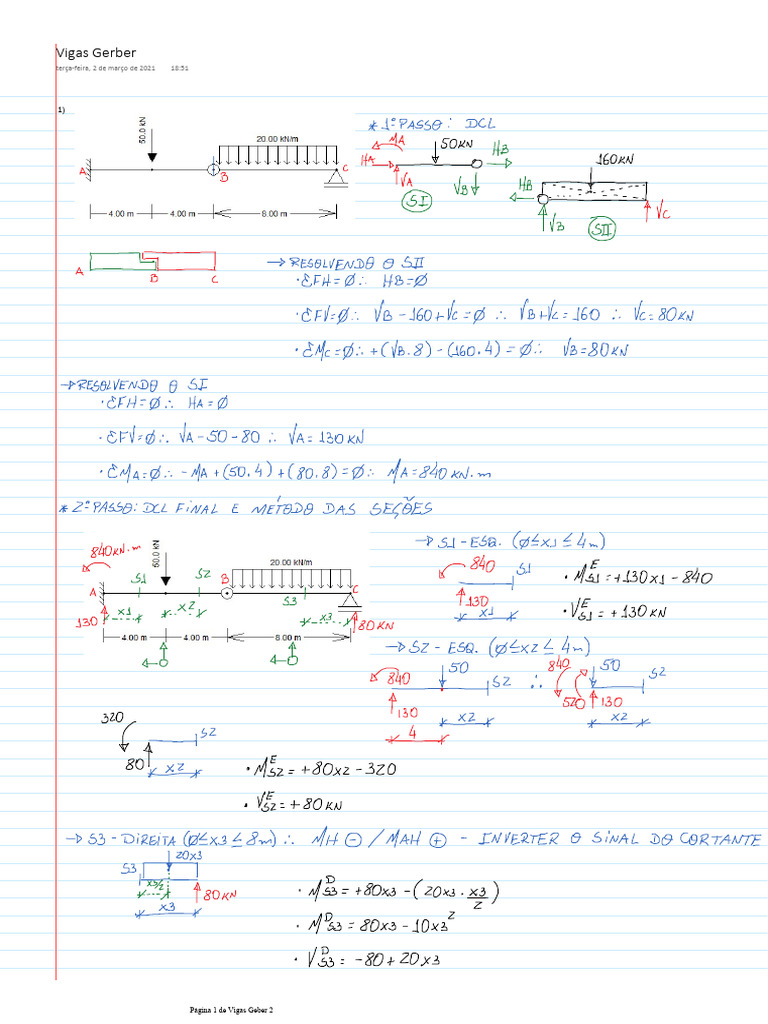 Vigas Gerber
terça-feira, 2 de março de 2021 18:51
1)
50.0 kN
20.00 kN/m
A
B
C
4.00 m
4.00 m
8.00 m
* 1º PASSO: DCL
MA
HA
VA
50KN
HB
VB
SI
160KN
HB
VB
SII
VC
A
B
C
→ RESOLVENDO O SII
• ΣFH=Ø∴ HB=Ø
• ΣFV=Ø∴ VB-160+VC=Ø ∴ VB+VC=160 ∴ VC=80KN
• ΣMC=Ø∴ +(VB.8)-(160.4)=Ø∴ VB=80KN
→ RESOLVENDO O SI
• ΣFH=Ø∴ HA=Ø
• ΣFV=Ø∴ VA-50-80 ∴ VA=130KN
• ΣMA=Ø∴ -MA+(50.4)+(80.8)=Ø∴ MA=840KN.m
* 2º PASSO: DCL FINAL E MÉTODO DAS SEÇÕES
840KN.m
50.0 kN
20.00 kN/m
S1
S2
A
B
C
S3
x1
x2
x3
130
80KN
4.00 m
4.00 m
8.00 m
→ S1-ESQ. (Ø≤x1≤4m)
840
S1
130
x1
• M^E S1=+130x1-840
• V^E S1=+130KN
→ S2-ESQ. (Ø≤x2≤4m)
840
50
S2
∴
840
50
S2
130
520
130
x2
x2
4
320
S2
80
x2
• M^E S2=+80x2-320
• V^E S2=+80KN
→ S3-DIREITA (Ø≤x3≤8m)∴ MH ⊖ / MAH ⊕ - INVERTER O SINAL DO CORTANTE
20x3
S3
x3/2
80KN
x3
• M^D S3=+80x3-(20x3.x3/2)
• M^D S3=80x3-10x3²
• V^D S3=-80+20x3
Página 1 de Vigas Geber 2